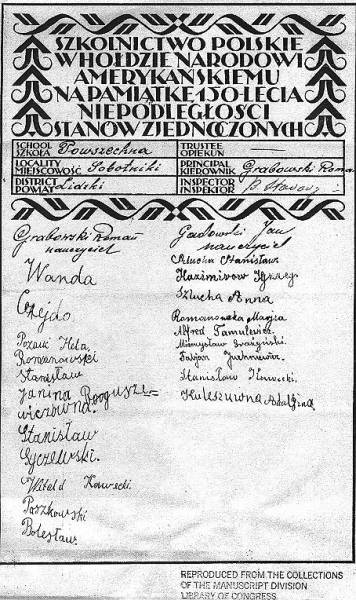 SZKOLNICTWO POLSKIE
W HOŁDZIE NARODOWI
AMERYKAŃSKIEMU
NA PAMIĄTKĘ 150-LECIA
NIEPODLEGŁOŚCI
STANÓW ZJEDNOCZONYCH
SCHOOL
SZKOŁA Powszechna
TRUSTEE
OPIEKUN —
LOCALITY
MIEJSCOWOŚĆ Sobotniki
PRINCIPAL
KIEROWNIK Grabowski Roman
DISTRICT
POWIAT Lidzki
INSPECTOR
INSPEKTOR
Grabowski Roman
nauczyciel
Wanda
Czejdo
Hela
Romanowski
Stanisław
Janina Bogusze=
wiczówna.
Stanisław
Gyczewski.
Witold Kawecki
Paszkowski
Bolesław
Gadowski Jan
nauczyciel
Klucha Stanisław
Kazimirow Ignacy
Szlucha Anna
Romanowska Maryja
Alfred Tamulewicz
Mieczysław
Fabjan Juchniewicz.
Stanisław Kawecki.
Kuleszuwna Adolfina
REPRODUCED FROM THE COLLECTIONS
OF THE MANUSCRIPT DIVISION
LIBRARY OF CONGRESS